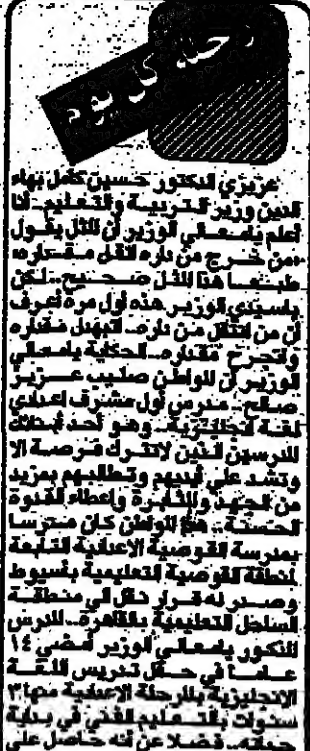 رحلة كل يوم
عزيزي الدكتور حسين كامل بهاء
الدين وزير التربية والتعليم.. أنا
أعلم يامعالي الوزير أن المثل يقول
«من خرج من داره اتقل مقداره»
طبعا هذا المثل صحيح.. لكن
ياسيدي الوزير هذه أول مرة أعرف
أن من انتقل من داره.. اتبهدل مقداره
واتجرح مقداره.. الحكاية يامعالي
الوزير أن المواطن صليب عزيز
صالح.. مدرس أول مشرف اعدادي
لغة انجليزية.. وهو أحد أبنائك
المدرسين الذين لاتترك فرصة الا
وتشد علي أيديهم وتطالبهم بمزيد
من الجهد والمثابرة وإعطاء القدوة
الحسنة.. هذا المواطن كان مدرسا
بمدرسة القوصية الاعدادية التابعة
لمنطقة القوصية التعليمية بأسيوط
وصدر له قرار نقل الي منطقة
الساحل التعليمية بالقاهرة.. المدرس
المذكور يامعالي الوزير أمضي ١٤
عاما في حقل تدريس اللغة
الانجليزية بالمرحلة الاعدادية منها ٣
سنوات بالتعليم الفني في بداية
حياته.. فضلا عن أنه حاصل علي